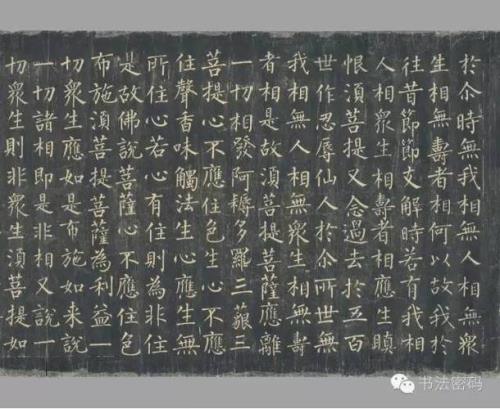 於尒時無我相無人相無衆
生相無壽者相何以故我於
往昔節節支解時若有我相
人相衆生相壽者相應生瞋
恨須菩提又念過去於五百
世作忍辱仙人於尒所世無
我相無人相無衆生相無壽
者相是故須菩提菩薩應離
一切相發阿耨多羅三藐三
菩提心不應住色生心不應
住聲香味觸法生心應生無
所住心若心有住則為非住
是故佛說菩薩心不應住色
布施須菩提菩薩為利益一
切衆生應如是布施如来說
一切諸相即是非相又說一
切衆生則非衆生須菩提如
书法密码